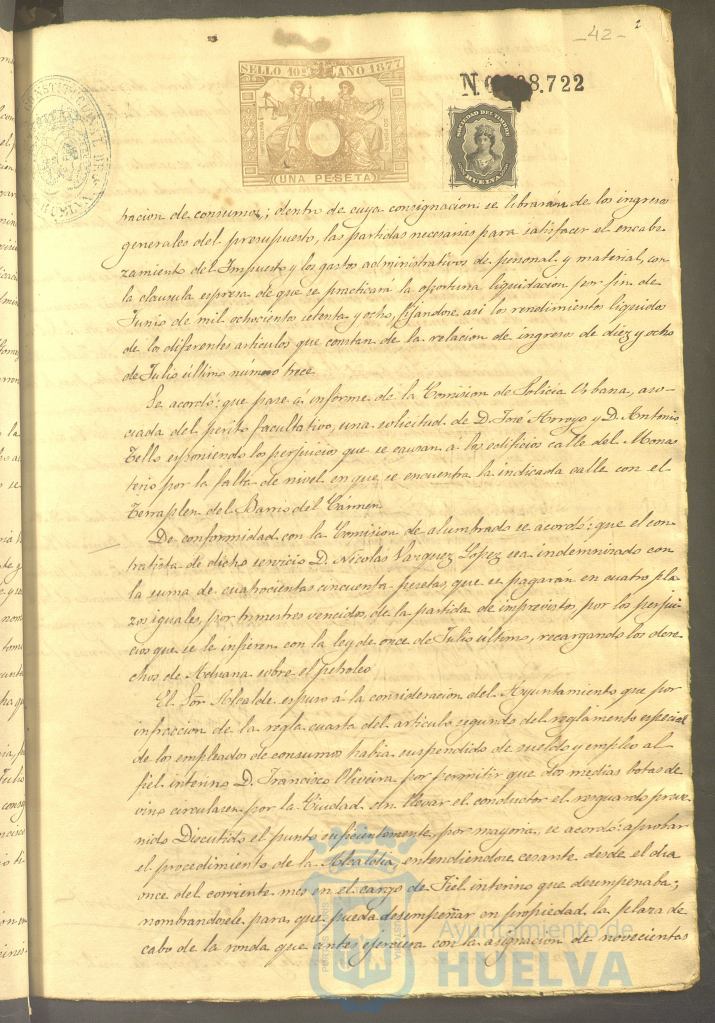 - 42 -
2
SELLO 10º AÑO 1877
UNA PESETA
N. 8.722
SOCIEDAD DEL TIMBRE
HUELVA
tracion de consumos; dentro de cuya consignacion se librarán de los ingresos
generales del presupuesto, las partidas necesarias para satisfacer el encabe-
zamiento del Impuesto y los gastos administrativos de personal y material, con
la clausula espresa de que se practicará la oportuna liquidacion por fin de
Junio de mil ochocientos setenta y ocho, fijandose asi los rendimientos líquidos
de los diferentes articulos que constan de la relacion de ingreso de diez y ocho
de Julio último número trece.
Se acordó: que pase á informe de la Comision de Policia Urbana, aso-
ciada del perito facultativo, una solicitud de D. José Arroyo y D. Antonio
Tello esponiendo los perjuicios que se causan á los edificios calle del Monas
terio por la falta de nivel en que se encuentra la indicada calle con el
Terraplen del Barrio del Cármen.
De conformidad con la Comision de alumbrado se acordó: que el con-
tratista de dicho servicio D. Nicolas Vazquez Lopez sea indemnizado con
la suma de cuatrocientas cincuenta pesetas, que se pagarán en cuatro pla
zos iguales, por trimestres vencidos, de la partida de imprevistos, por los perjui-
cios que se le infieren con la ley de once de Julio último, recargando los dere-
chos de Aduana sobre el petroleo
El Sor. Alcalde espuso á la consideracion del Ayuntamiento que por
infraccion de la regla cuarta del articulo segundo del reglamento especial
de los empleados de consumos habia suspendido de sueldo y empleo al
fiel interino D. Francisco Oliveira por permitir que dos medias botas de
vino circulasen por la Ciudad sin llevar el conductor el resguardo preve-
nido. Discutido el punto suficientemente, por mayoria, se acordó: aprobar
el procedimiento de la Alcaldia, entendiendose cesante desde el dia
once del corriente mes en el cargo de Fiel interino que desempeñaba;
nombrandosele para que pueda desempeñar en propiedad la plaza de
cabo de la ronda que antes ejerciera con la asignacion de novecientas
Ayuntamiento de
HUELVA